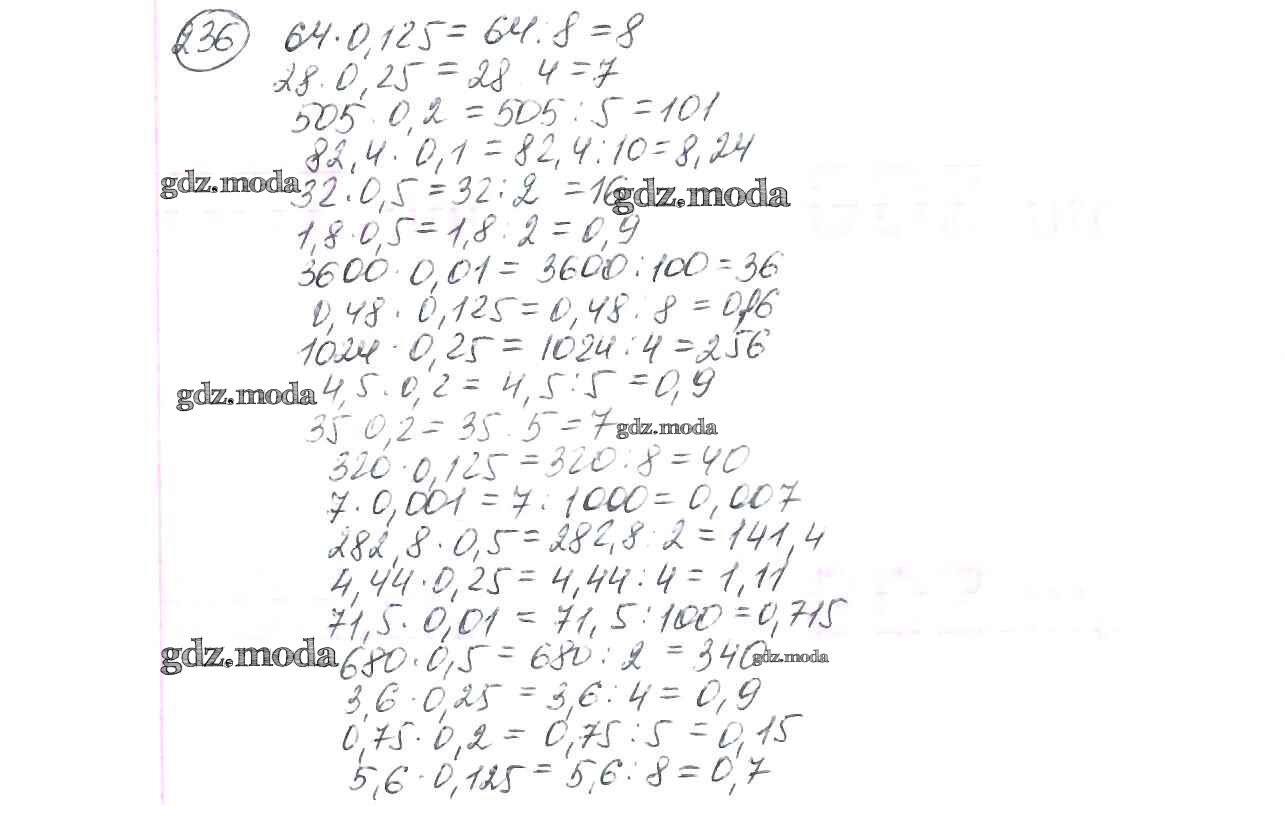 236 64·0,125 = 64:8 = 8
28·0,25 = 28 4 = 7
505·0,2 = 505:5 = 101
82,4·0,1 = 82,4:10 = 8,24
gdz.moda 32·0,5 = 32:2 = 16 gdz.moda
1,8·0,5 = 1,8:2 = 0,9
3600·0,01 = 3600:100 = 36
0,48·0,125 = 0,48:8 =
1024·0,25 = 1024:4 = 256
gdz.moda 4,5·0,2 = 4,5:5 = 0,9
35 0,2 = 35:5 = 7 gdz.moda
320·0,125 = 320:8 = 40
7·0,001 = 7:1000 = 0,007
282,8·0,5 = 282,8:2 = 141,4
4,44·0,25 = 4,44:4 = 1,11
71,5·0,01 = 71,5:100 = 0,715
gdz.moda 680·0,5 = 680:2 = 340 gdz.moda
3,6·0,25 = 3,6:4 = 0,9
0,75·0,2 = 0,75:5 = 0,15
5,6·0,125 = 5,6:8 = 0,7